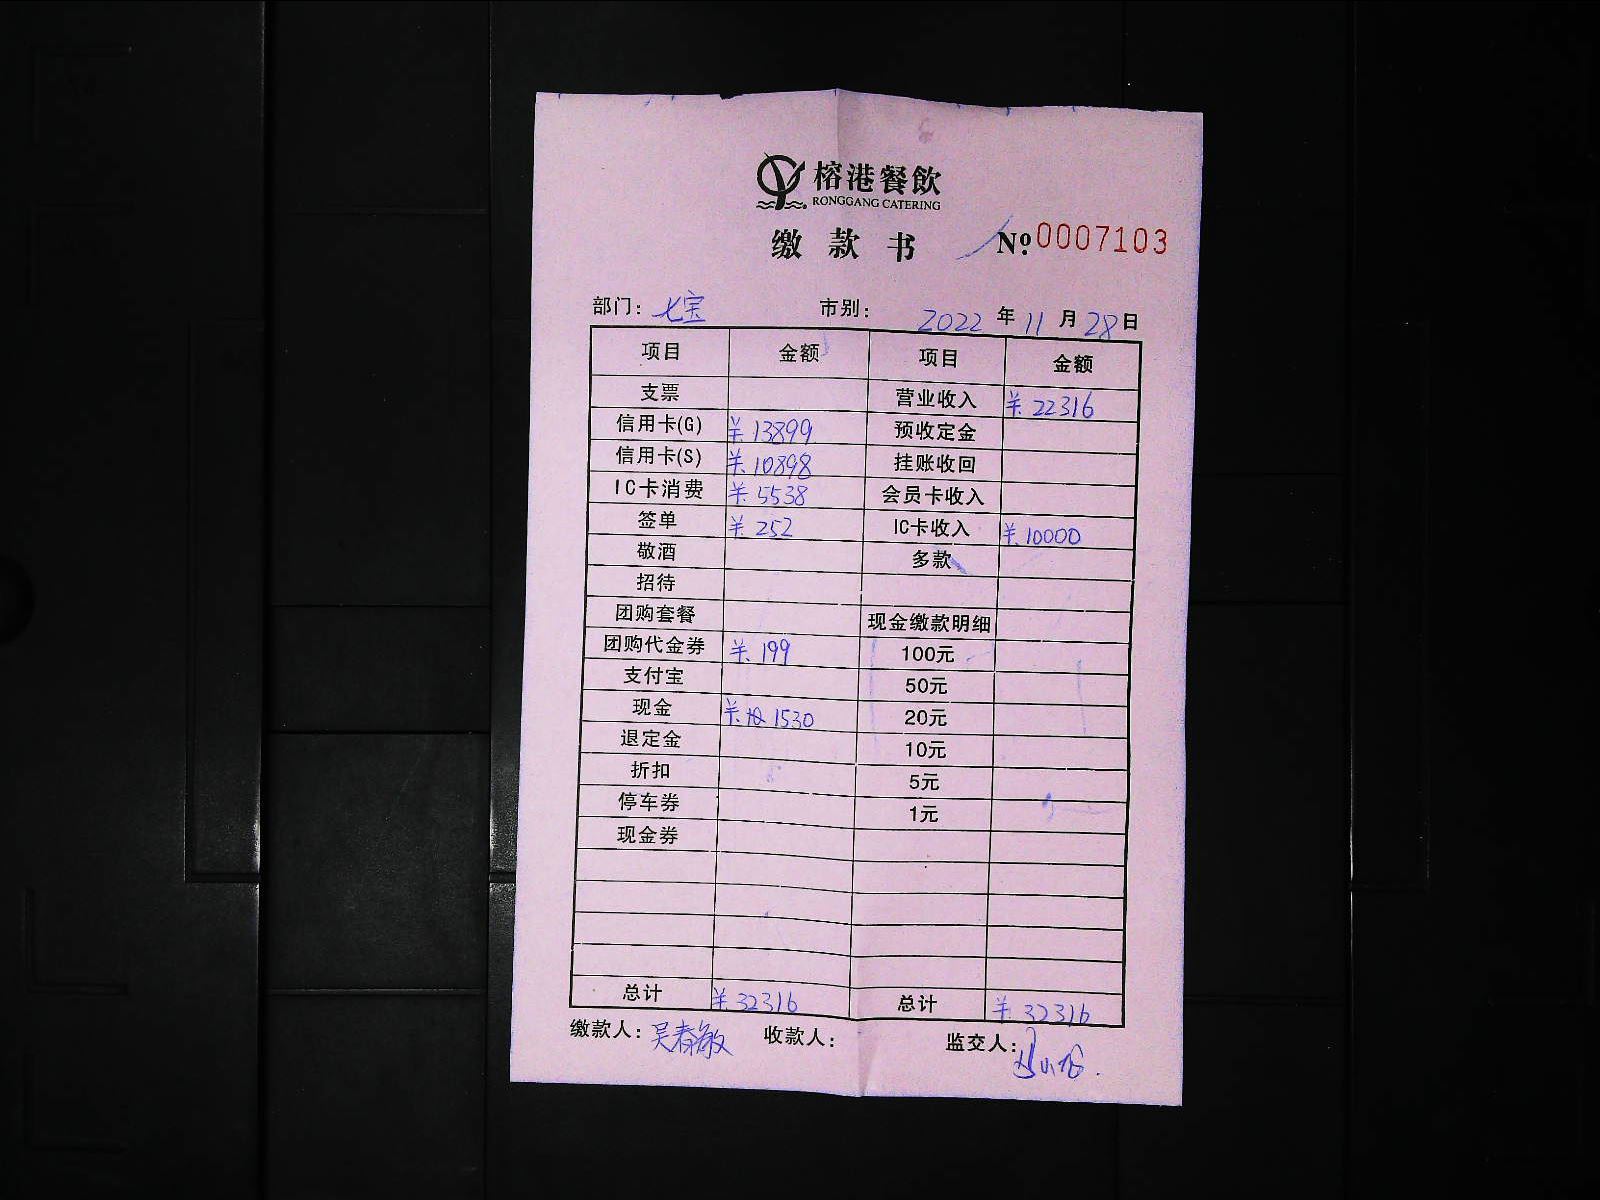 榕港餐飲
RONGGANG CATERING
缴款书
№ 0007103
部门：七宝 市别： 2022年11月28日
项目 金额 项目 金额
支票 营业收入 ¥22316
信用卡(G) ¥13899 预收定金
信用卡(S) ¥10898 挂账收回
IC卡消费 ¥5538 会员卡收入
签单 ¥252 IC卡收入 ¥10000
敬酒 多款
招待
团购套餐 现金缴款明细
团购代金券 ¥199 100元
支付宝 50元
现金 ¥ 1530 20元
退定金 10元
折扣 5元
停车券 1元
现金券
总计 ¥32316 总计 ¥32316
缴款人：吴春敏 收款人： 监交人：